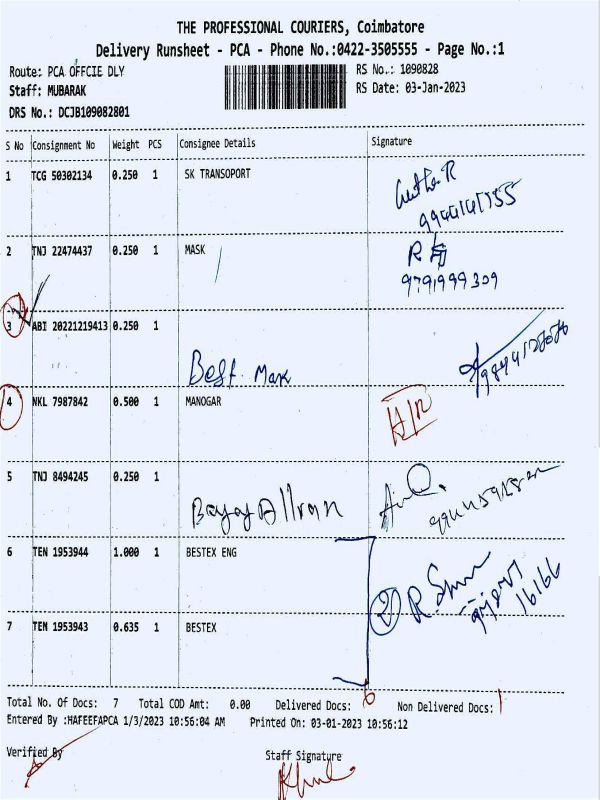 THE PROFESSIONAL COURIERS, Coimbatore
Delivery Runsheet - PCA - Phone No.:0422-3505555 - Page No.:1
Route: PCA OFFCIE DLY RS No.: 1090828
Staff: MUBARAK RS Date: 03-Jan-2023
DRS No.: DCJB109082801
S No Consignment No Weight PCS Consignee Details Signature
1 TCG 50302134 0.250 1 SK TRANSOPORT
2 TNJ 22474437 0.250 1 MASK
9791999309
3 ABI 20221219413 0.250 1
Best Mark
4 NKL 7987842 0.500 1 MANOGAR
5 TNJ 8494245 0.250 1
6 TEN 1953944 1.000 1 BESTEX ENG
2
16166
7 TEN 1953943 0.635 1 BESTEX
Total No. Of Docs: 7 Total COD Amt: 0.00 Delivered Docs: 6 Non Delivered Docs: 1
Entered By :HAFEEFAPCA 1/3/2023 10:56:04 AM Printed On: 03-01-2023 10:56:12
Verified By Staff Signature